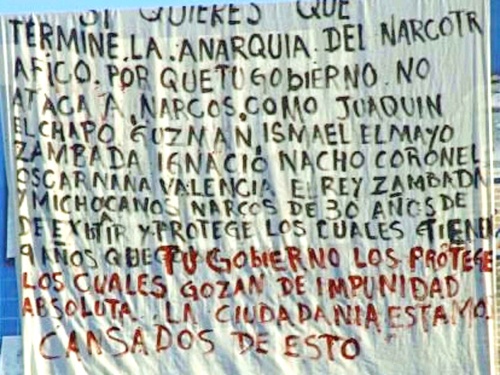 SI QUIERES QUE
TERMINE LA ANARQUIA DEL NARCOTR
AFICO. POR QUE TU GOBIERNO NO
ATACA A NARCOS, COMO JUAQUIN
EL CHAPO GUZMAN, ISMAEL EL MAYO
ZAMBADA IGNACIO NACHO CORONEL
OSCAR NANA VALENCIA EL REY ZAMBADA
Y MICHOCANOS NARCOS DE 30 AÑOS DE
DE EXITIR Y PROTEGE LOS CUALES TIENEN
9 AÑOS QUE TU GOBIERNO LOS PROTEGE
LOS CUALES GOZAN DE IMPUNIDAD
ABSOLUTA. LA CIUDADANIA ESTAMO
CANSADOS DE ESTO